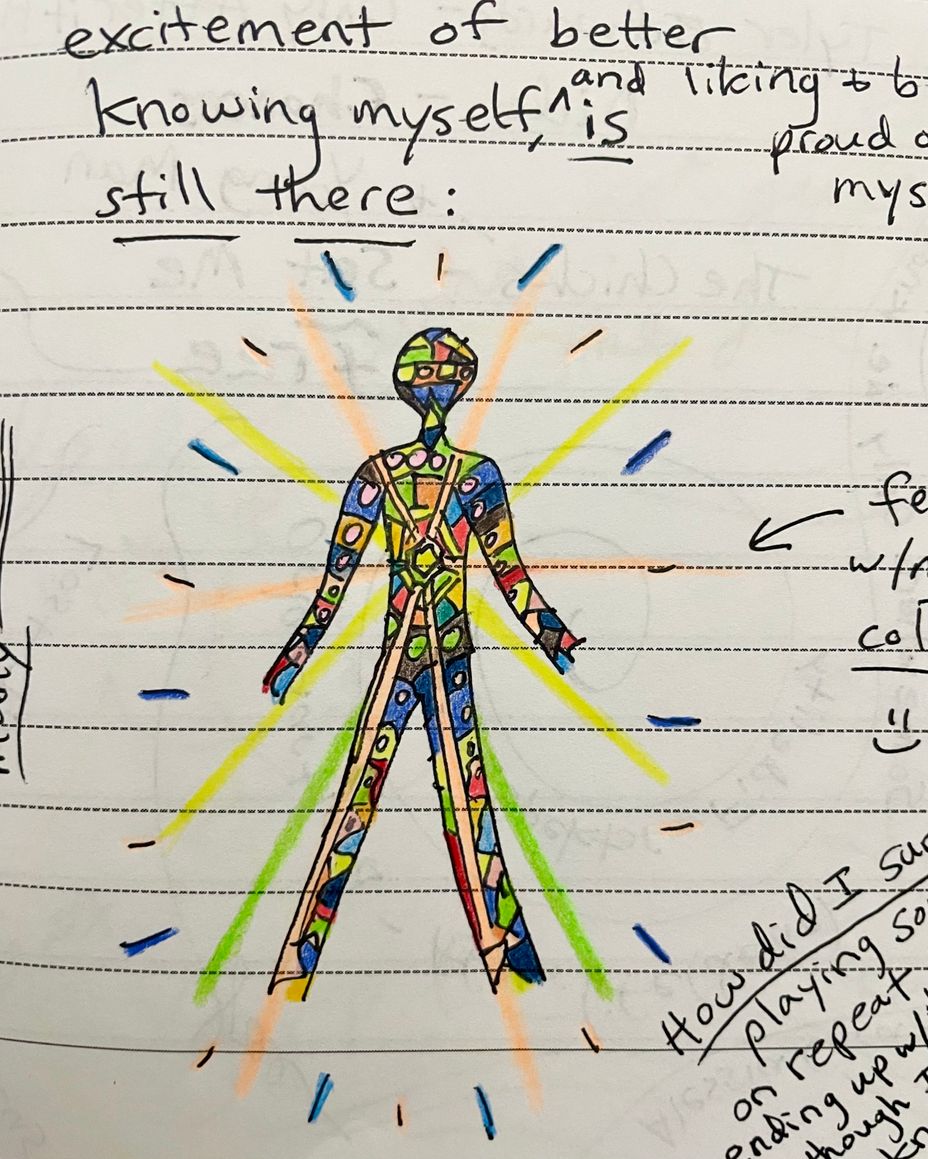 excitement of better
knowing myself, ^ and liking to b
is
proud o
mys
still there:
fe
w/r
col
How did I sur
playing so
on repeat
ending up w/
though I
kn